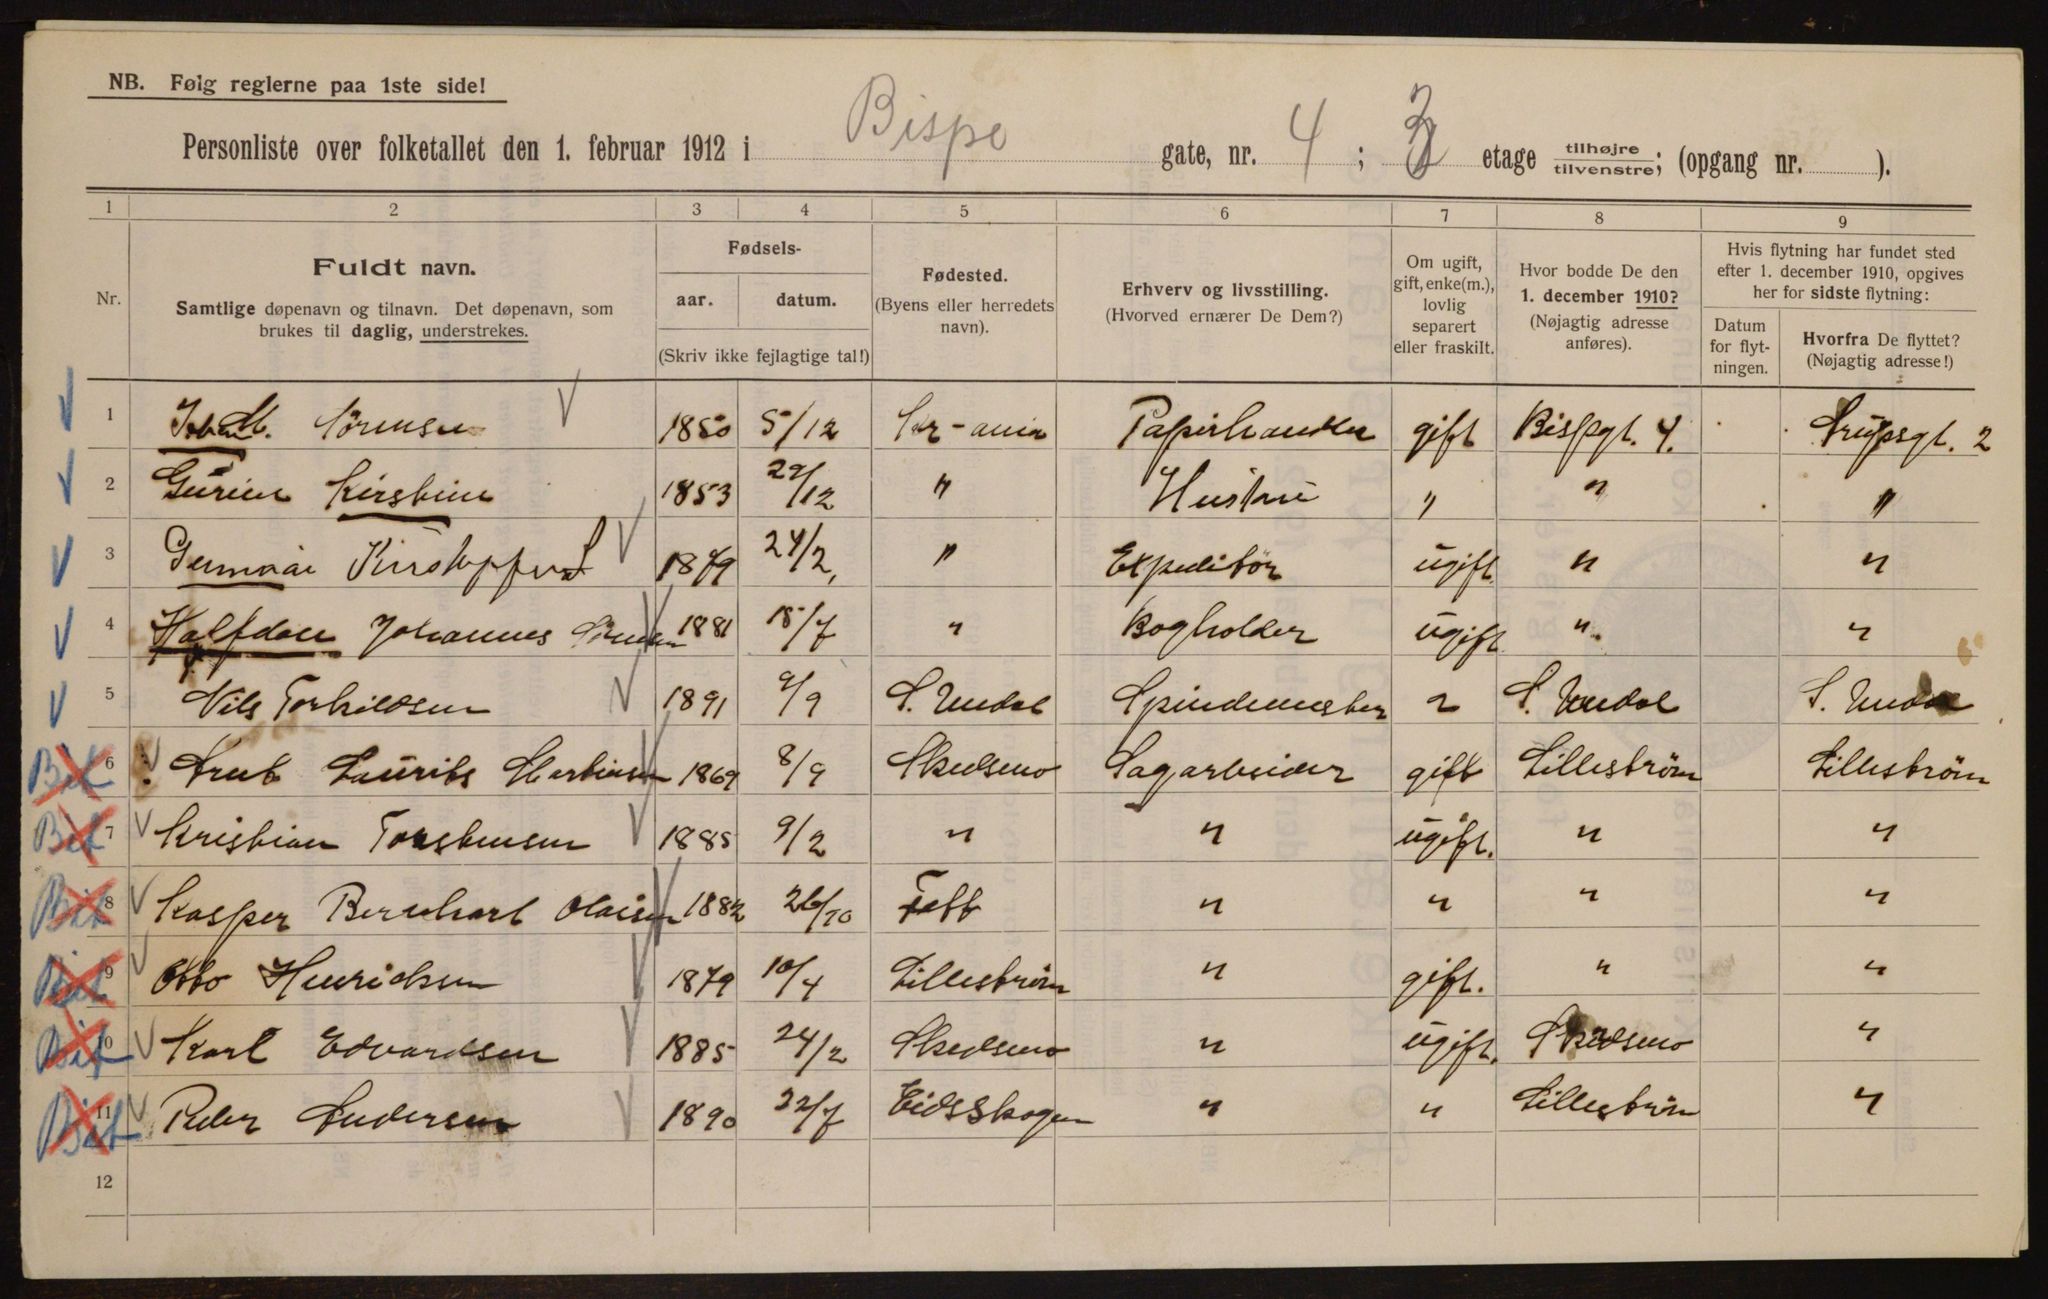 NB. Følg reglerne paa 1ste side!
Personliste over folketallet den 1. februar 1912 i Bispe gate, nr. 4 ; 3 etage tilhøjre tilvenstre; (opgang nr. ).
1 2 3 4 5 6 7 8 9
Nr.
Fuldt navn.
Samtlige døpenavn og tilnavn. Det døpenavn, som
brukes til daglig, understrekes.
Fødsels-
aar. datum.
(Skriv ikke fejlagtige tal!)
Fødested.
(Byens eller herredets
navn).
Erhverv og livsstilling.
(Hvorved ernærer De Dem?)
Om ugift,
gift, enke(m.),
lovlig
separert
eller fraskilt.
Hvor bodde De den
1. december 1910?
(Nøjagtig adresse
anføres).
Hvis flytning har fundet sted
efter 1. december 1910, opgives
her for sidste flytning:
Datum
for flyt-
ningen.
Hvorfra De flyttet?
(Nøjagtig adresse!)
1 Johan M. Sörensen 1850 5/12 Kr-ania Papirhandler gift Bispgt. 4. 2
2 Kirstine 1853 29/12 " Hustru " " "
3 1879 24/2 " Expeditör ugift " "
4 Halfdan Johannes Sörensen 1881 15/7 " Bogholder ugift " "
5 Nils Torkildsen 1891 9/9 S. Undal " S. Undal S. Undal
Bit 6 Laurits Martinsen 1869 8/9 Skedsmo Sagarbeider gift Lilleström Lilleström
Bit 7 Kristian Torstensen 1885 9/2 " " ugift. " "
Bit 8 Kasper Bernhart Olaisen 1882 26/10 Fett " " " "
Bit 9 Otto Henriksen 1879 10/4 Lilleström " gift. " "
Bit 10 Karl Edvardsen 1885 24/2 Skedsmo " ugift. Skedsmo "
Bit 11 Peder Andersen 1890 22/7 Eidsskogen " " Lilleström "
12